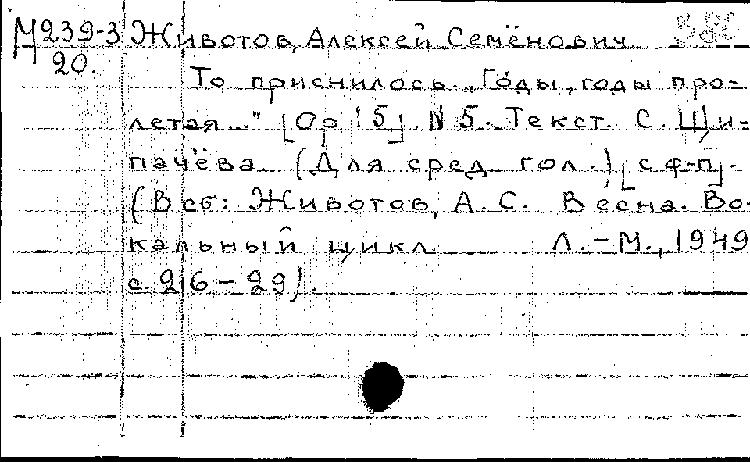 М239-3 Животов, Алексей Семёнович
20.
То приснилось „Годы, годы про-
летая..." [Op. 5] N 5. Текст С. Щи-
пачёва (Для сред. гол.) [с ф-п].
(В сб: Животов, А. С. Весна. Во-
кальный цикл Л.-М., 1949
с. 26-29).